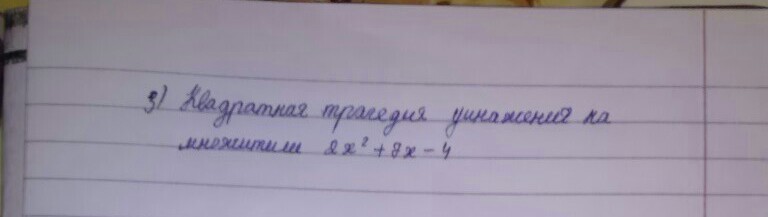 3) Квадратная трагедия уинажения на
множители 2x² + 7x - 4